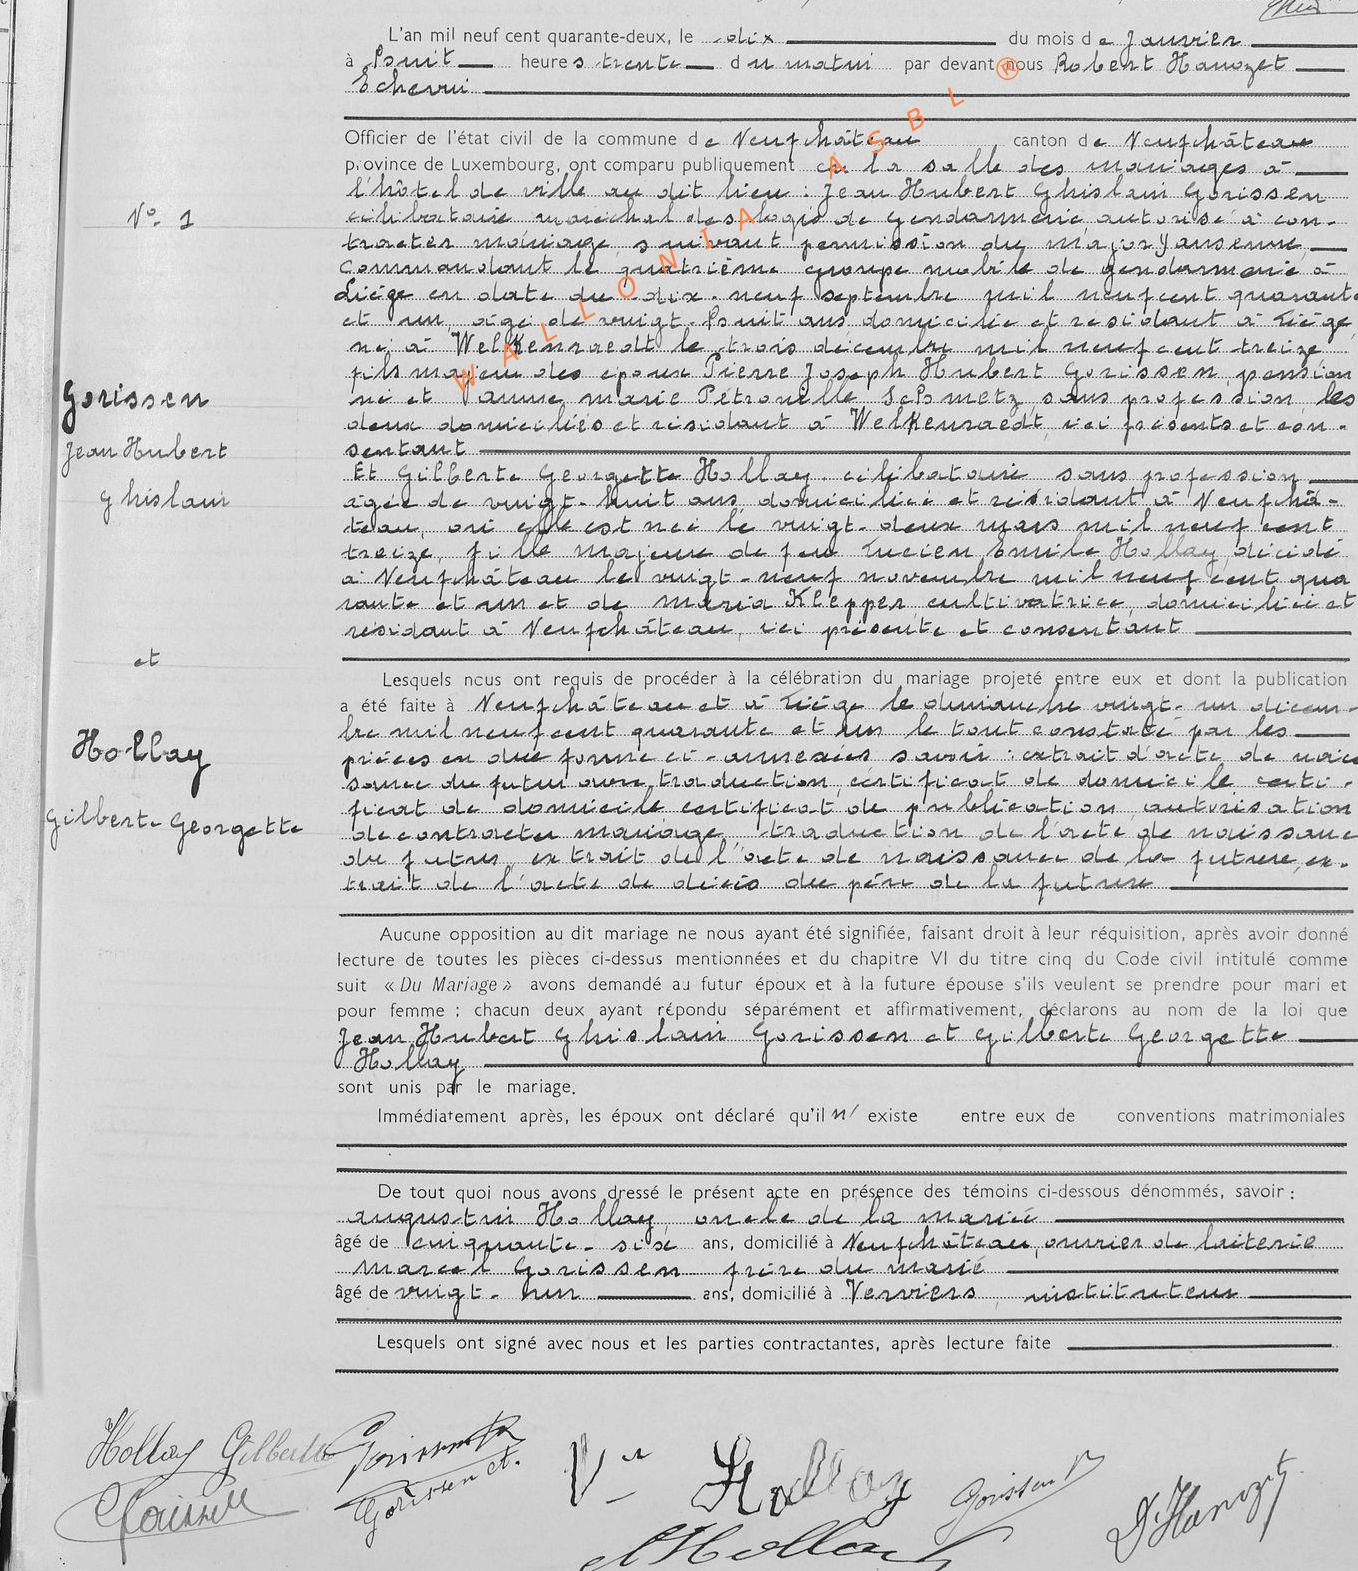 L'an mil neuf cent quarante-deux, le dix du mois de Janvier
à huit heures trente du matin par devant nous Robert Hanozet
Echevin
Officier de l'état civil de la commune de Neufchâteau canton de Neufchâteau
province de Luxembourg, ont comparu publiquement en la salle des mariages à
l'hôtel de ville au dit lieu : Jean Hubert Ghislain Gorissen
N° 1
célibataire maréchal des logis de gendarmerie, autorisé à con-
tracter mariage suivant permission du major Jansenne,
Commandant le quatrième groupe mobile de gendarmerie à
Liége en date du dix-neuf septembre mil neuf cent quarante
et un, âgé de vingt-huit ans, domicilié et résidant à Liége,
né à Welkenraedt le trois décembre mil neuf cent treize
fils majeur des époux Pierre Joseph Hubert Gorissen, pension
né et Jeanne Marie Pétronille Schmetz, sans profession, les
deux domiciliés et résidant à Welkenraedt, ici présents et con-
sentant
Gorissen
Jean Hubert
Ghislain
Et Gilberte Georgette Hollay, célibataire sans profession
âgée de vingt-huit ans, domiciliée et résidant à Neufchâ-
teau, où elle est née le vingt-deux mars mil neuf cent
treize, fille majeure de feu Lucien Emile Hollay, décédé
à Neufchâteau le vingt-neuf novembre mil neuf cent qua
rante et un et de Maria Klepper cultivatrice, domiciliée et
résidant à Neufchâteau, ici présente et consentant
et
Lesquels nous ont requis de procéder à la célébration du mariage projeté entre eux et dont la publication
a été faite à Neufchâteau et à Liége le dimanche vingt-un décem-
bre mil neuf cent quarante et un le tout constaté par les
pièces en due forme ci-annexées savoir : extrait d'acte de nais
sance du futur avec traduction, certificat de domicile certi-
ficat de domicile certificat de publication, autorisation
de contracter mariage, traduction de l'acte de naissance
du futur, extrait de l'acte de naissance de la future, ex-
trait de l'acte de décès du père de la future
Hollay
Gilberte Georgette
Aucune opposition au dit mariage ne nous ayant été signifiée, faisant droit à leur réquisition, après avoir donné
lecture de toutes les pièces ci-dessus mentionnées et du chapitre VI du titre cinq du Code civil intitulé comme
suit « Du Mariage » avons demandé au futur époux et à la future épouse s'ils veulent se prendre pour mari et
pour femme ; chacun deux ayant répondu séparément et affirmativement, déclarons au nom de la loi que
Jean Hubert Ghislain Gorissen et Gilberte Georgette
Hollay
sont unis par le mariage.
Immédiatement après, les époux ont déclaré qu'il n' existe entre eux de conventions matrimoniales
De tout quoi nous avons dressé le présent acte en présence des témoins ci-dessous dénommés, savoir :
Augustin Hollay, oncle de la mariée
âgé de cinquante-six ans, domicilié à Neufchâteau, ouvrier de laiterie
Marcel Gorissen frère du marié
âgé de vingt-un ans, domicilié à Verviers, instituteur
Lesquels ont signé avec nous et les parties contractantes, après lecture faite
Hollay Gilberte
Gorissen
Gorissen
Ve Hollay
Gorissen
Hanozet
Hollay
WALLONIA ASBL ®